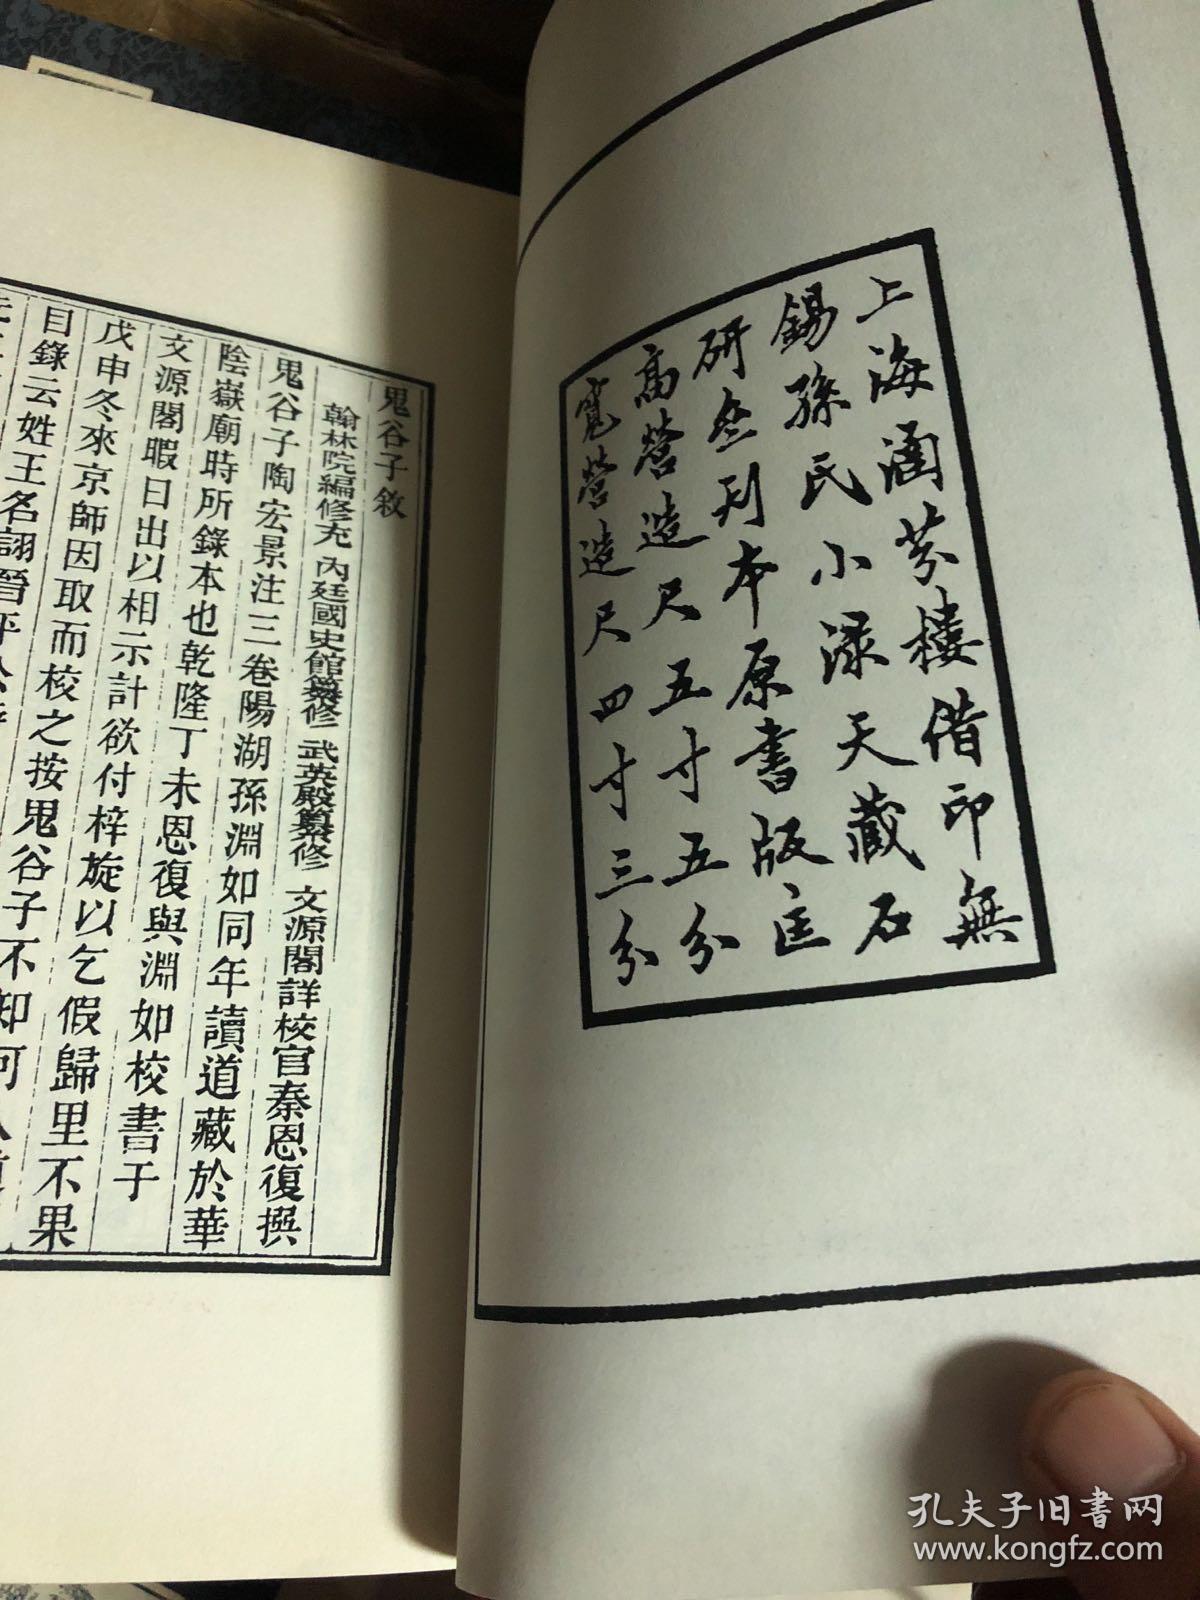 上海涵芬樓借印無
錫孫氏小渌天藏石
研齋刊本原書版匡
高營造尺五寸五分
寬營造尺四寸三分
鬼谷子敘
翰林院編修充 內廷國史館纂修 武英殿纂修 文源閣詳校官秦恩復撰
鬼谷子陶宏景注三卷陽湖孫淵如同年讀道藏於華
陰嶽廟時所錄本也乾隆丁未恩復與淵如校書于
文源閣暇日出以相示計欲付梓旋以乞假歸里不果
戊申冬來京師因取而校之按鬼谷子不知何
目錄云姓王名詡晉平公
孔夫子旧书网
www.kongfz.com